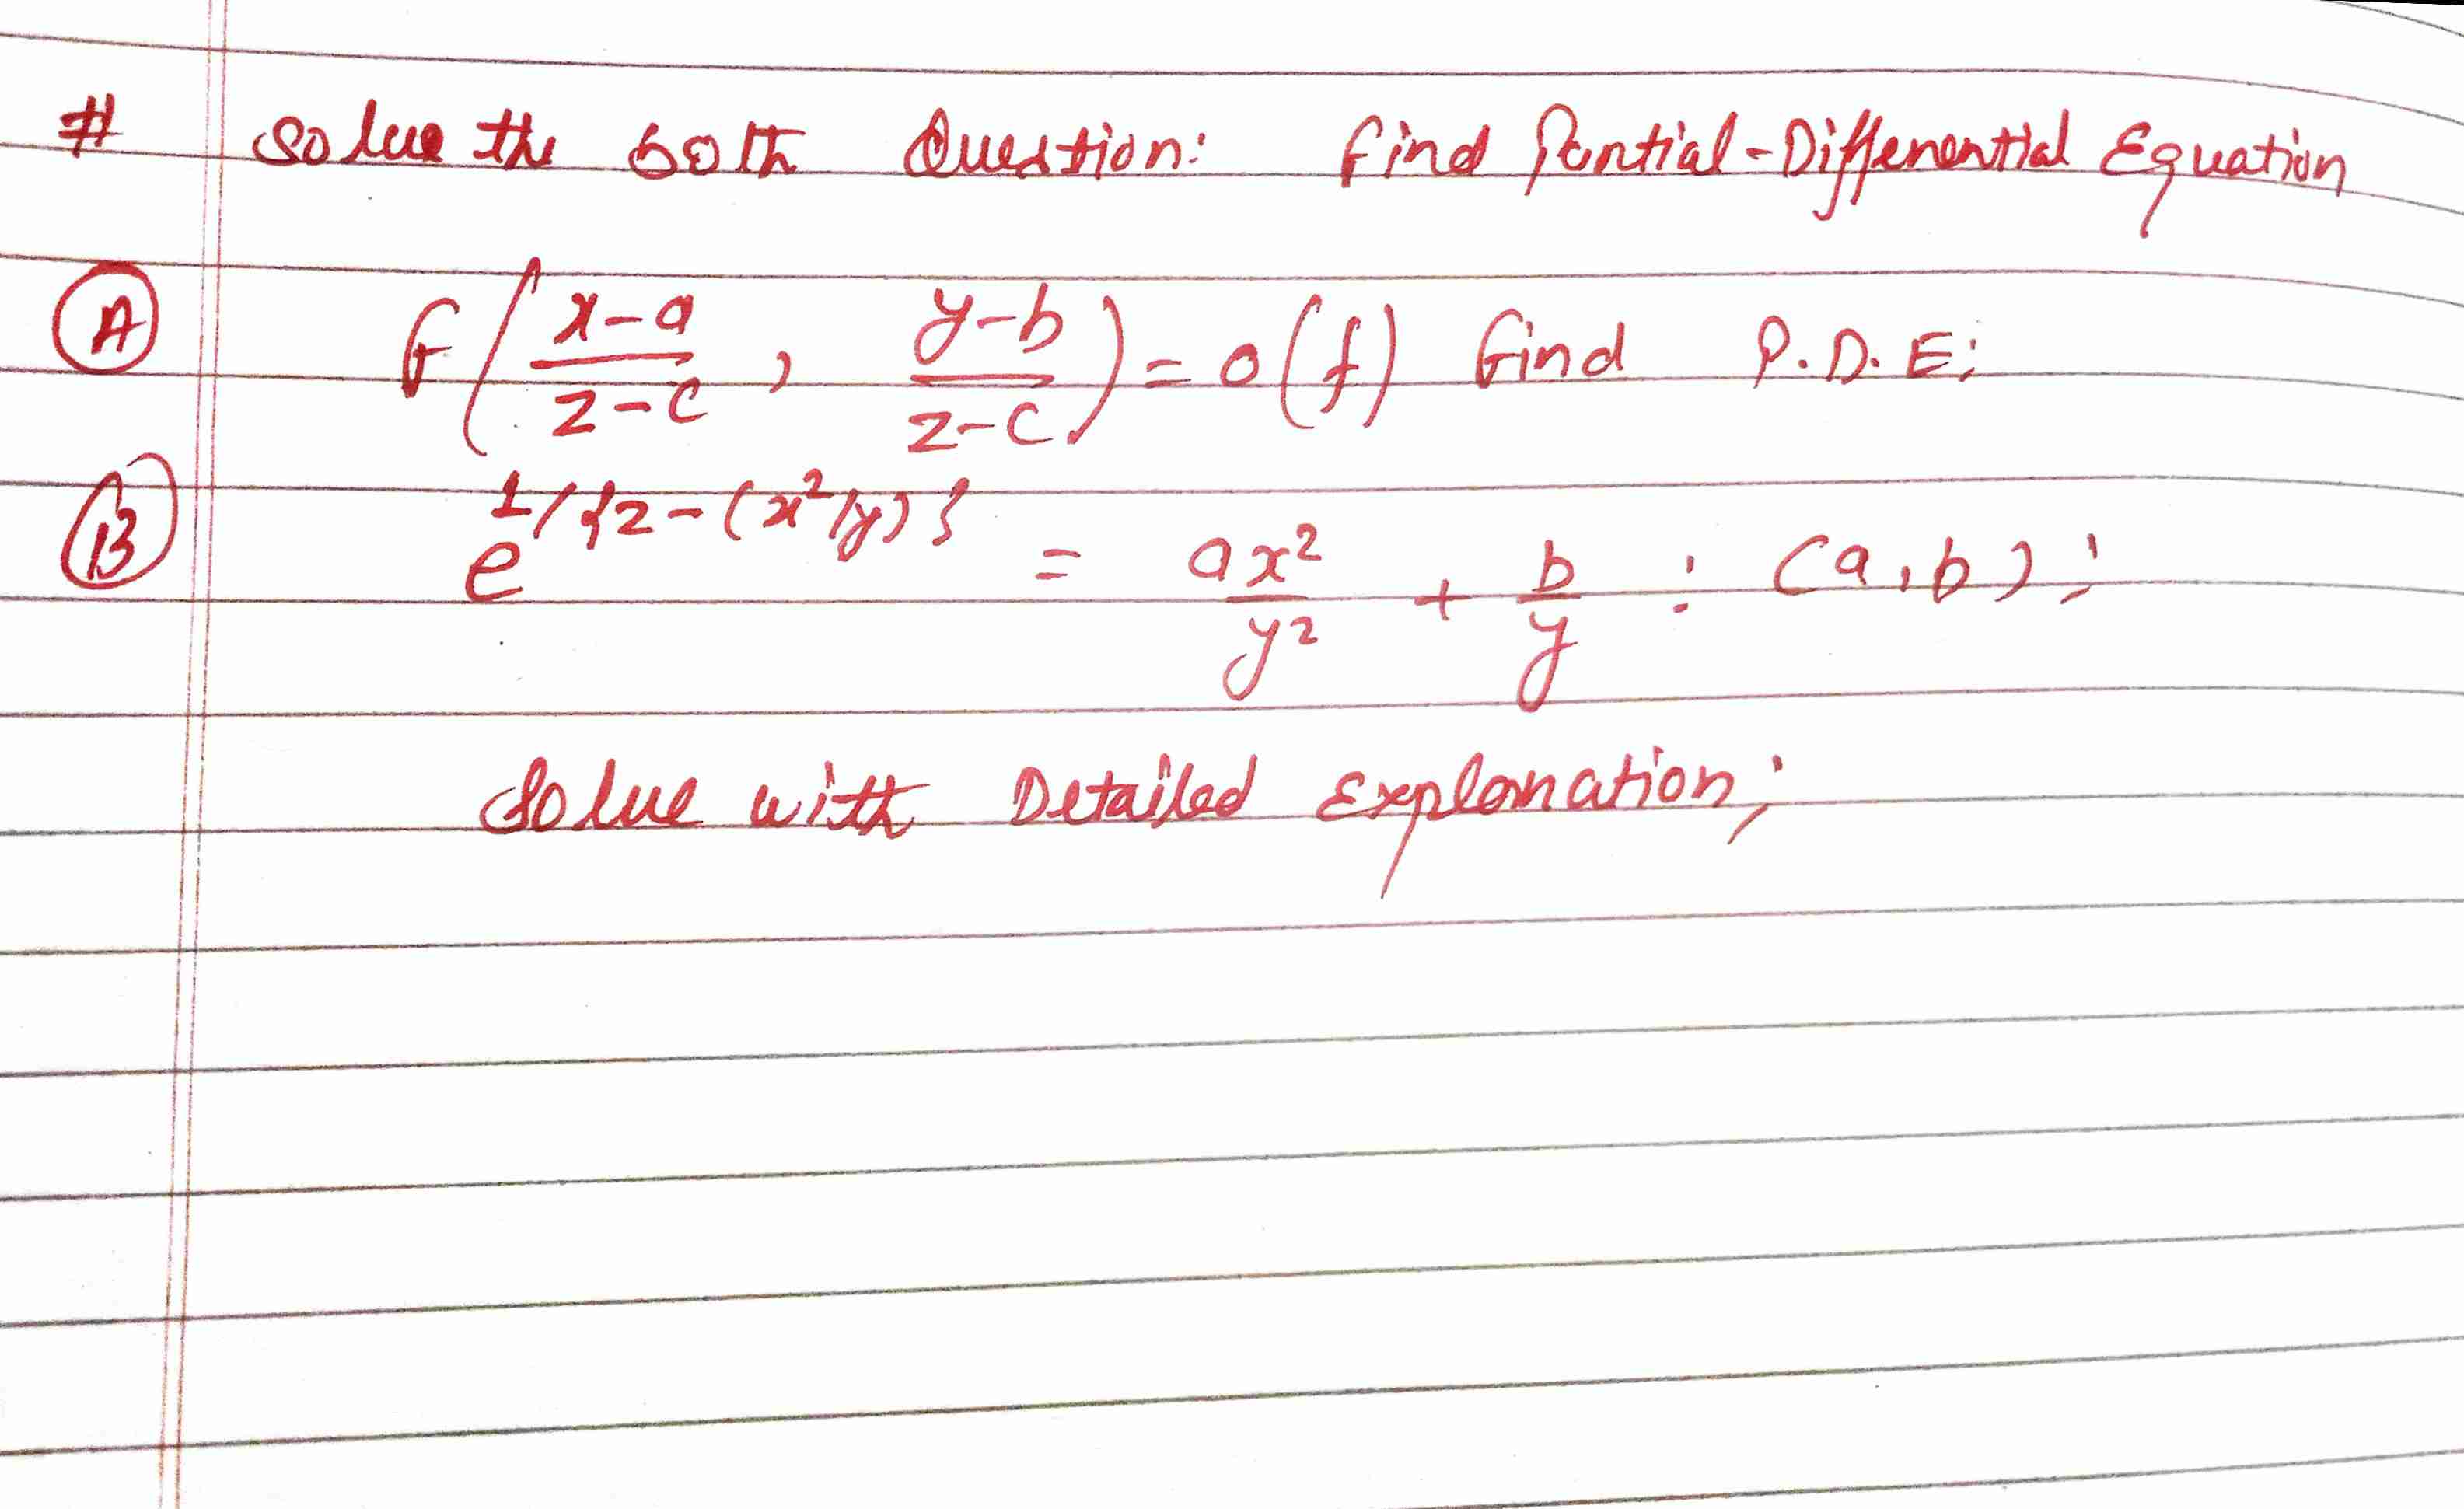 # Solve the both Question: Find Partial-Differential Equation
(A) f((x-a)/(z-c), (y-b)/(z-c)) = 0 (f) find P.D.E;
(B) e^(1/{z-(x²/y)}) = ax²/y² + b/y : (a, b);
Solve with Detailed Explanation;